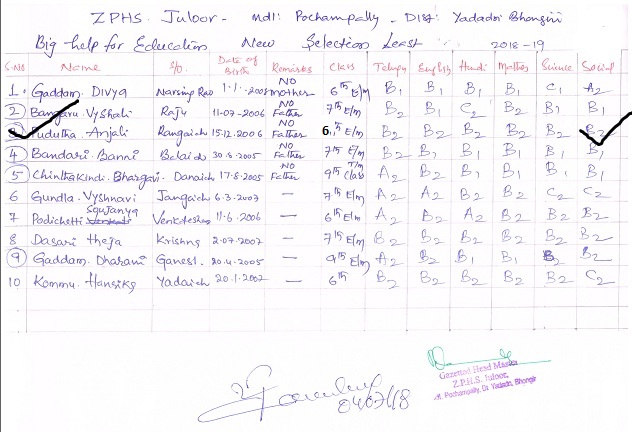 ZPHS. Juloor - Mdl: Pochampally - Dist: Yadadri Bhongiri
Big help for Education New Selection Least 2018-19
S.No Name S/o. Date of Birth Remarks Class Telugu English Hindi Maths Science Social
1. Gaddam. Divya Narsing Rao 1.1. 2005 NO mother 6th E/m B1 B1 B1 B1 C1 A2
2 Bangaru. Vyshali Raju 11-07-2006 NO Father 7th E/m B2 B1 C2 B2 B1 B1
3 Pudutha. Anjali Rangaiah 15.12.2006 NO Father 6th E/m B2 B2 B2 B2 B2 B2
4 Bandari. Banni Belaiah 30.8.2005 NO Father 7th E/m B2 B1 B1 B1 B1 B1
5 Chinthakindi. Bhargavi. Danaiah 17.8.2005 NO Father 9th T/m Class A2 B2 B1 B1 B1 B1
6 Gundla. Vyshnavi Jangaiah 6.3.2007 — 7th E/m A2 A2 B2 B2 C2 C2
7 Podichetti Soujanya Venkatesh 11.6.2006 — 6th E/m A2 B2 A2 B2 B2 B2
8 Dasari theja Krishna 2.07.2007 — 7th E/m B2 B2 B2 B2 B2 B2
9 Gaddam. Dharani Ganesh. 20.4.2005 — 9th E/m A2 B2 B1 B1 B2 B2
10 Kommu. Hansika Yadaiah 20.1.2007 — 6th B2 B2 B2 B2 B2 C2
04/07/18
Gazetted Head Master
Z.P.H.S. Juloor,
M. Pochampally, Dt. Yadadri, Bhongir